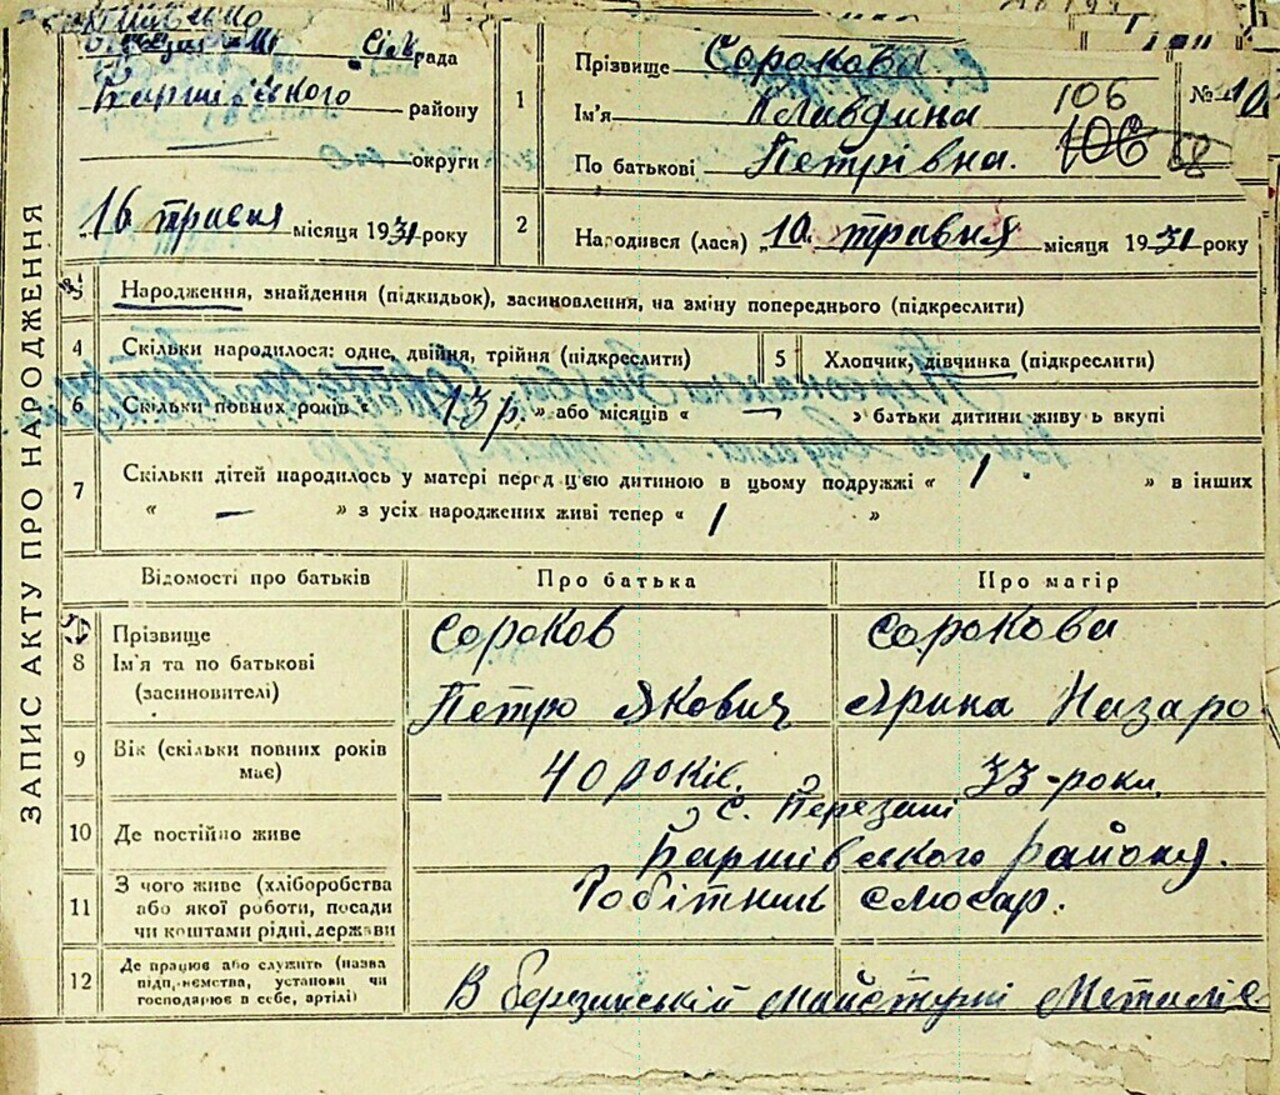 ЗАПИС АКТУ ПРО НАРОДЖЕННЯ
рада
району
округи
16 травня місяця 1931 року
1
Прізвище Сорокова
Ім'я Клавдина
По батькові Петрівна.
106
106
№ 10
2
Народився (лася) „10 травня місяця 1931 року
3
Народження, знайдення (підкидьок), засиновлення, на зміну попереднього (підкреслити)
4
Скільки народилося: одне, двійня, трійня (підкреслити)
5
Хлопчик, дівчинка (підкреслити)
6
Скільки повних років « 13 р. » або місяців « — » батьки дитини живуть вкупі
7
Скільки дітей народилось у матері перед цією дитиною в цьому подружжі « 1 » в інших
« — » з усіх народжених живі тепер « 1 »
Відомості про батьків
Про батька
Про матір
8
Прізвище
Ім'я та по батькові
(засиновителі)
Сороков
Петро Якович
Сорокова
Ярина Назаро
9
Вік (скільки повних років
має)
40 років.
33-роки.
10
Де постійно живе
с. Перезані
району.
11
З чого живе (хліборобства
або якої роботи, посади
чи коштами рідні, держави
Робітник слюсар.
12
Де працює або служить (назва
підприємства, установи чи
господарює в себе, артілі)
В березанській майстерні Металіс